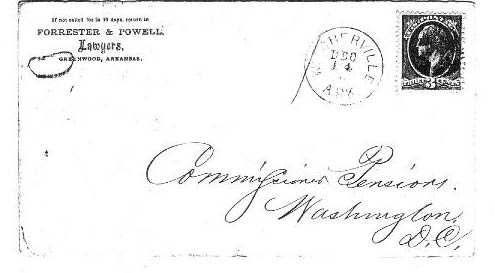 If not called for in 10 days, return to
FORREST​ER & POWELL,
Lawyers,
GREENWOOD, ARKANSAS.
DEC
14
ARK
3 CENTS
Commissioner Pensions.
Washington,
D.C.